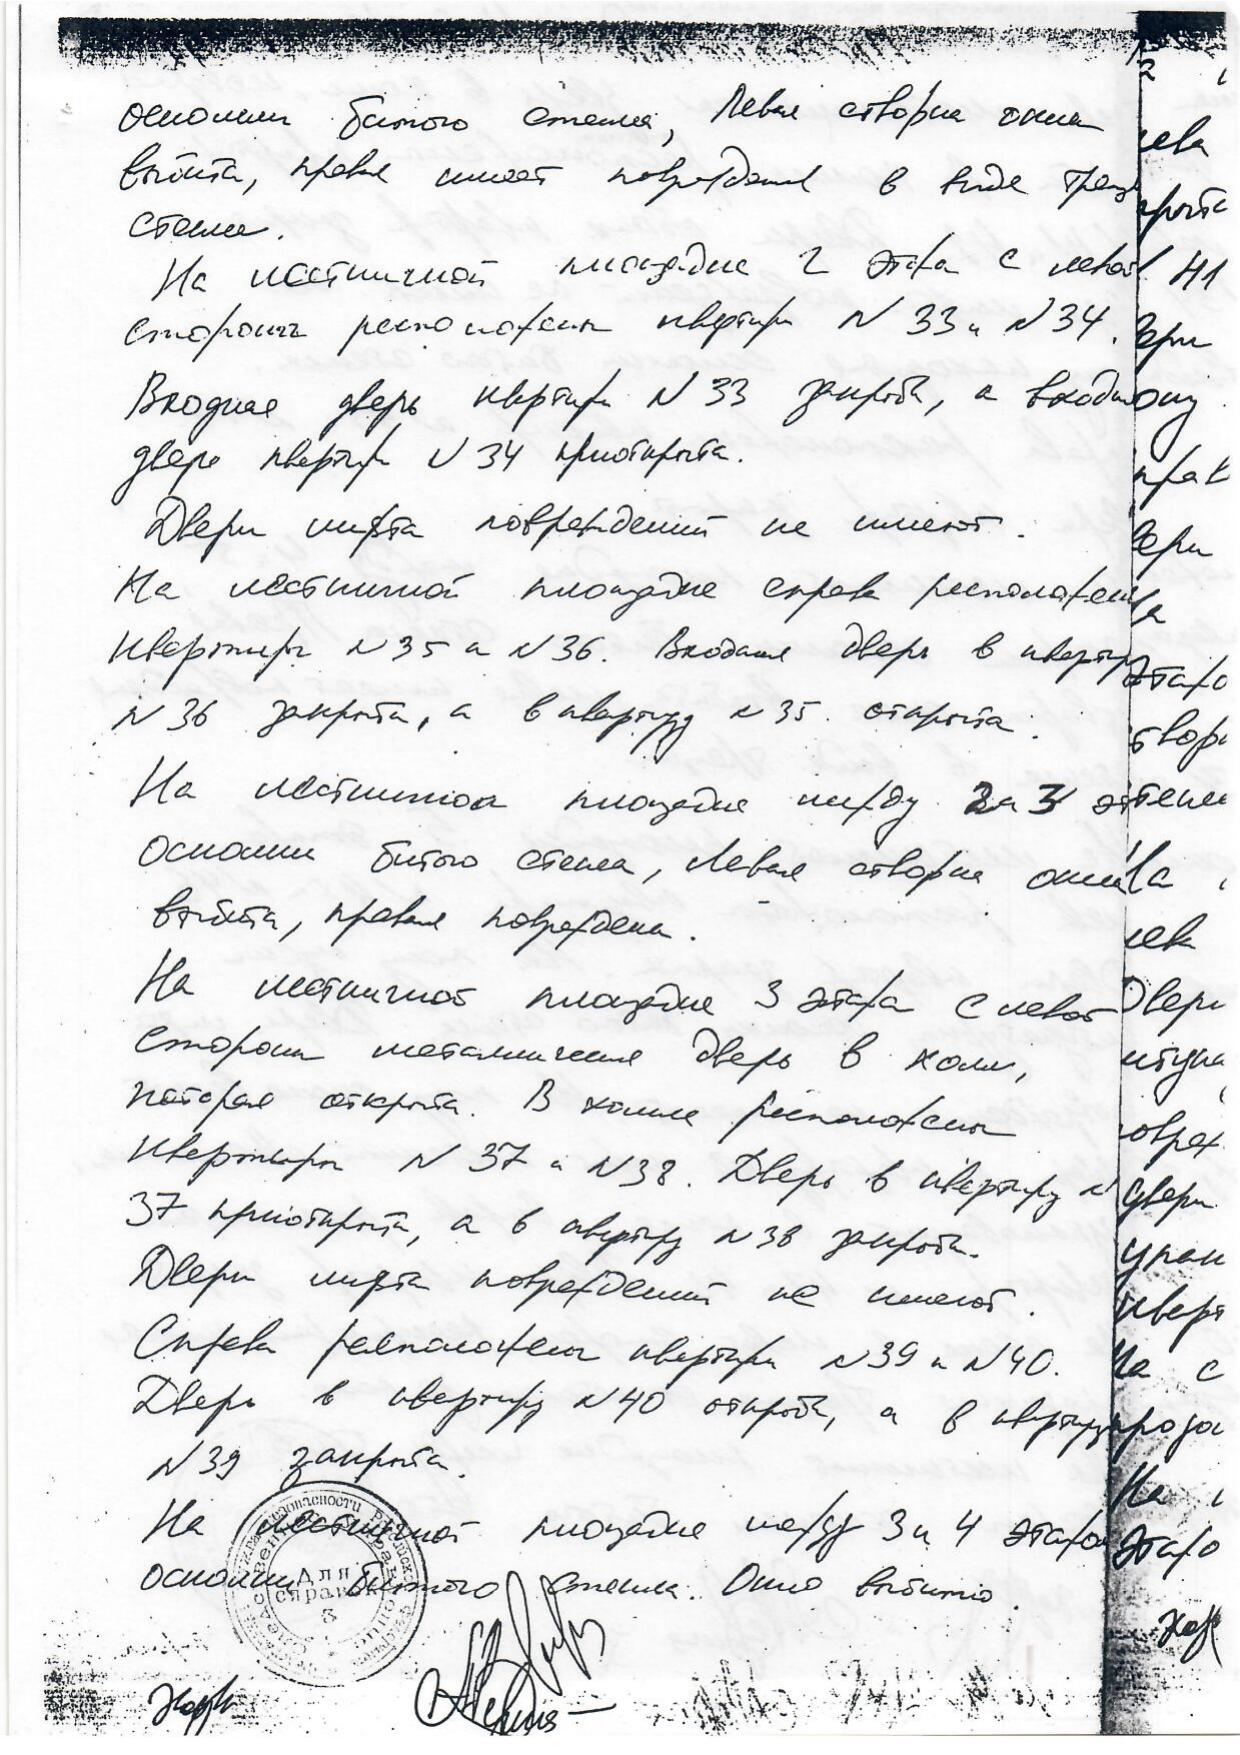 осколки битого стекла, Левая створка окна
выбита, правая имеет повреждения в виде трещ
стекла.
На лестничной площадке 2 этажа с левой
стороны расположены квартиры N 33 и N 34.
Входная дверь квартиры N 33 закрыта, а входная
дверь квартиры N 34 приоткрыта.
Двери лифта повреждений не имеют.
На лестничной площадке справа расположены
квартиры N 35 и N 36. Входная дверь в квартиру
N 36 закрыта, а в квартиру N 35 открыта.
На лестничной площадке между 2 и 3 эт
осколки битого стекла, Левая створка окна
выбита, правая повреждена.
На лестничной площадке 3 этажа с левой
стороны металлическая дверь в холл,
которая открыта. В холле расположены
квартиры N 37 и N 38. Дверь в квартиру N
37 приоткрыта, а в квартиру N 38 закрыта.
Двери лифта повреждений не имеют.
Справа расположены квартиры N 39 и N 40.
Дверь в квартиру N 40 открыта, а в квартиру
N 39 закрыта.
На лестничной площадке между 3 и 4 этажом
осколки битого стекла. Окно выбито.
Для
справок
3
лева
крыта
41
вери
прав
вери
этажо
створ
лева
Двери
штука
повреж
двери
кварт
На с
На
этажо